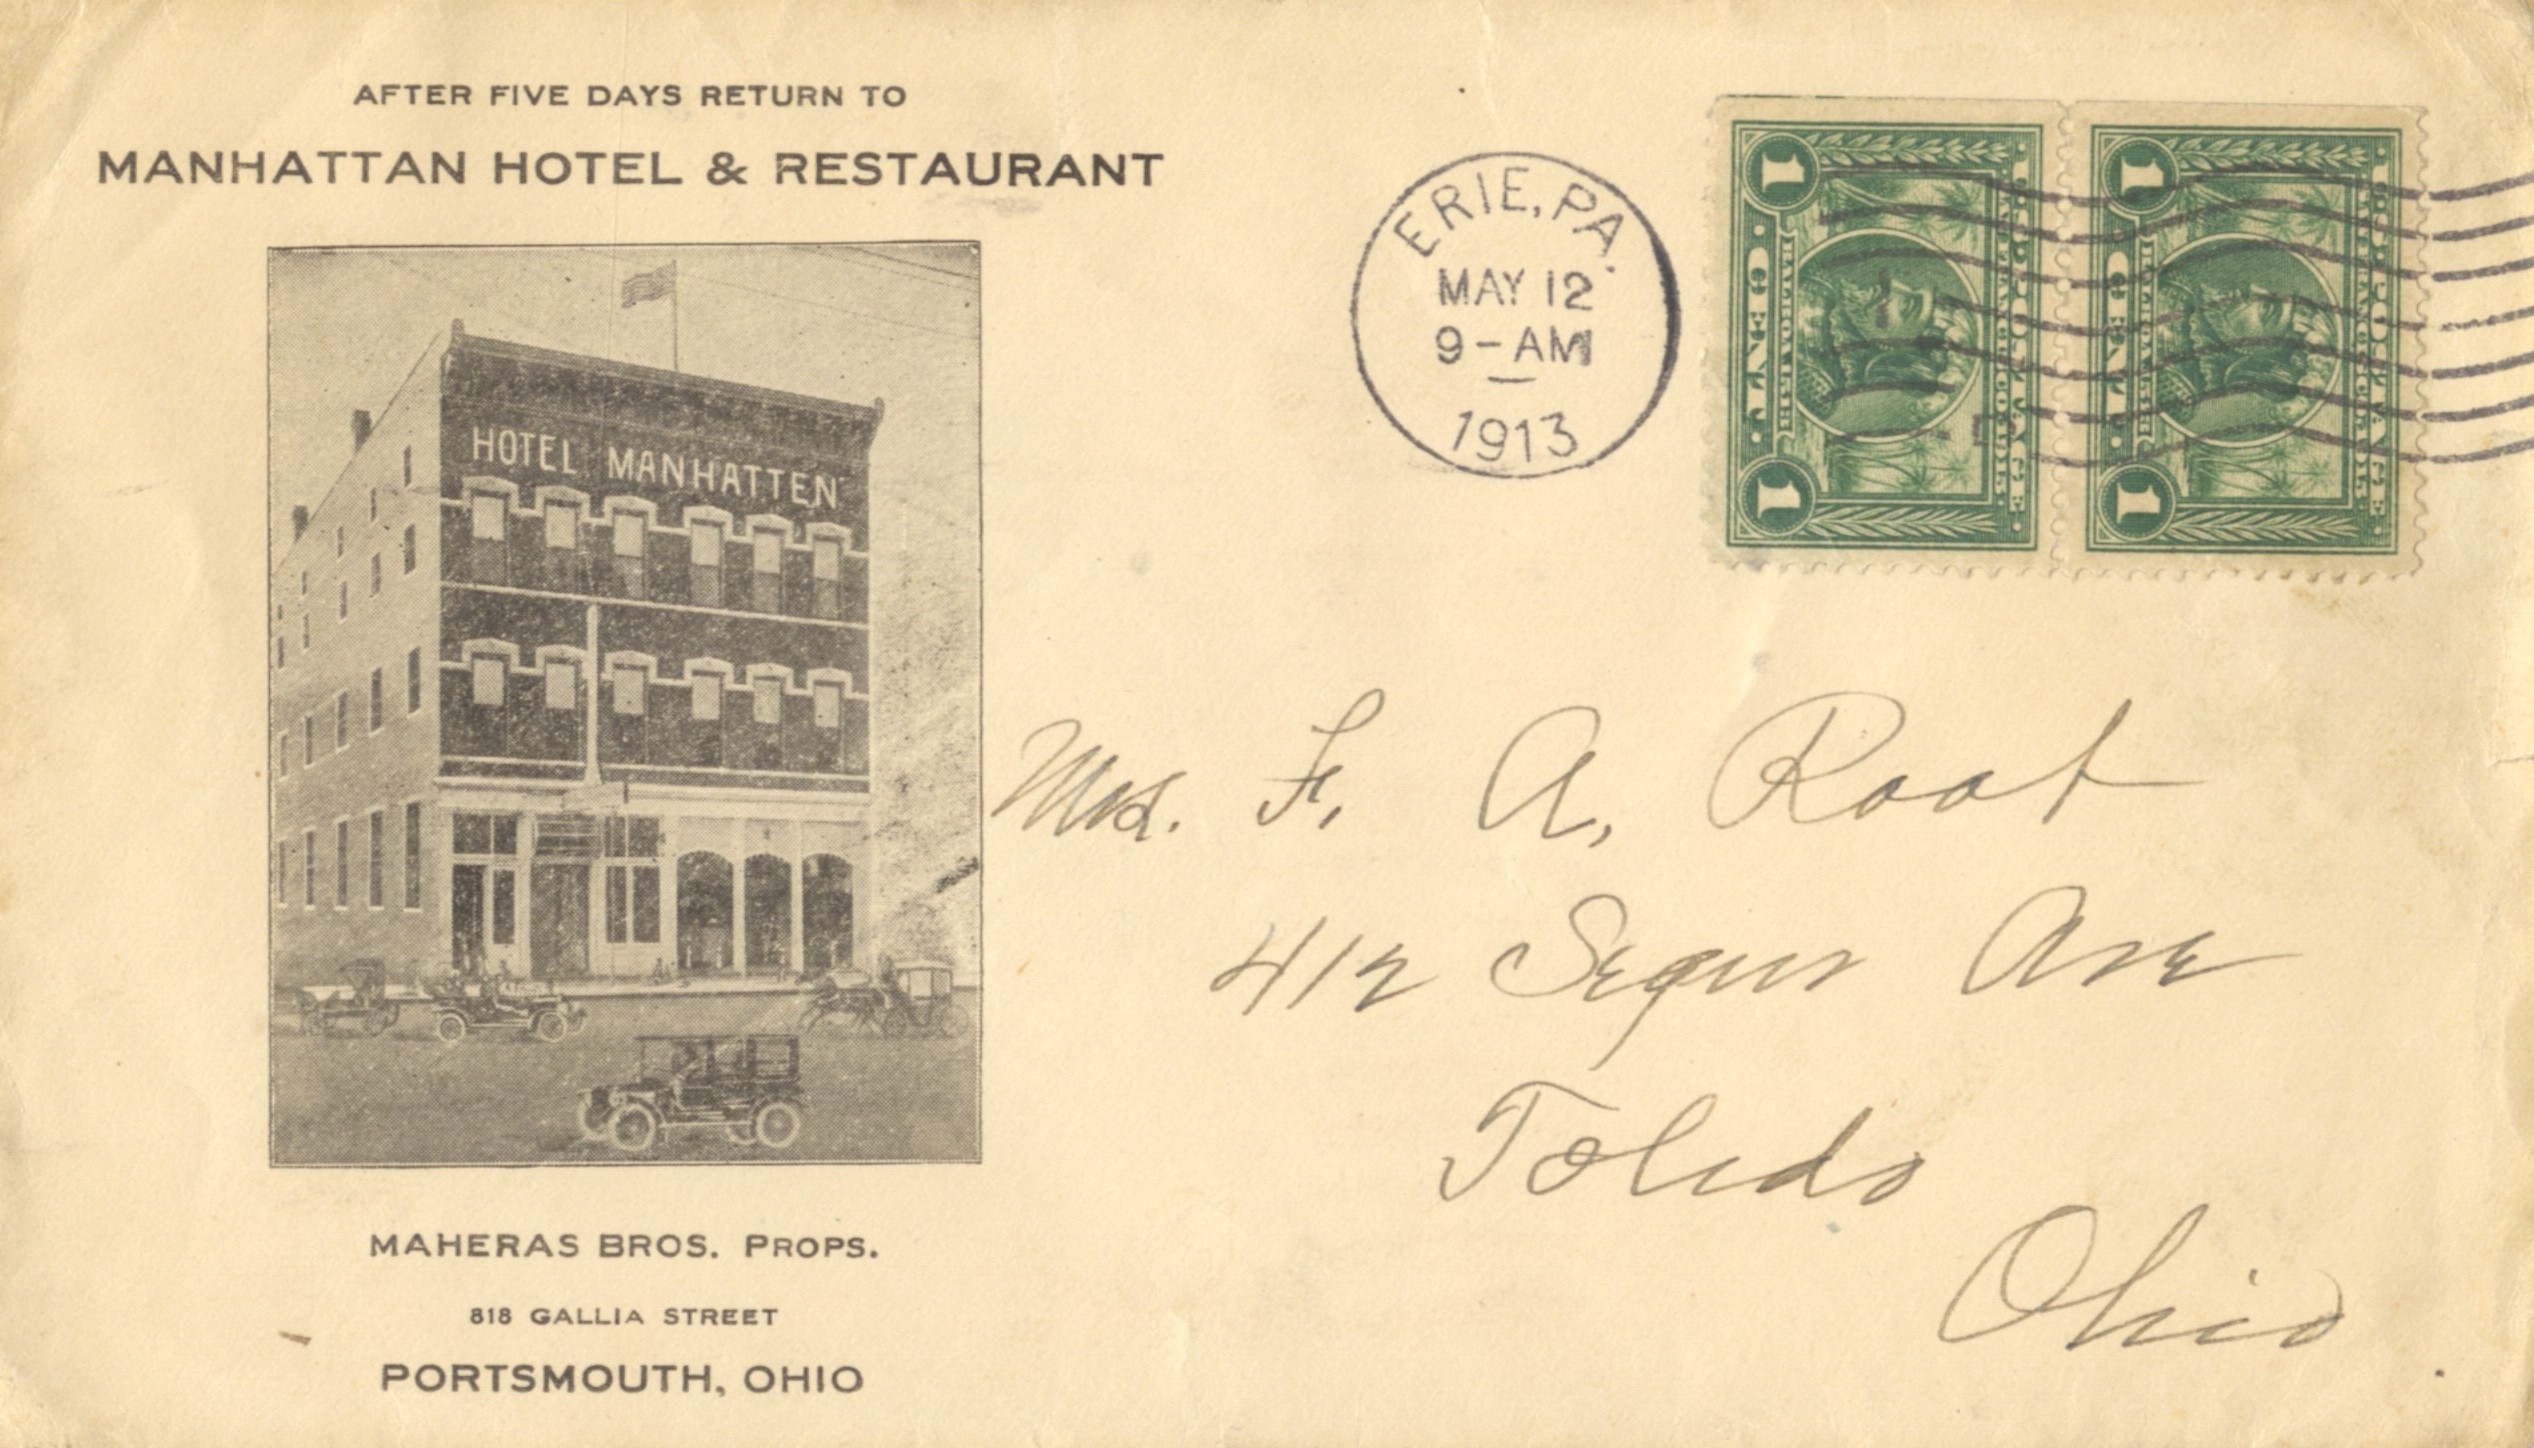 AFTER FIVE DAYS RETURN TO
MANHATTAN HOTEL & RESTAURANT
HOTEL MANHATTEN
MAHERAS BROS. PROPS.
818 GALLIA STREET
PORTSMOUTH, OHIO
ERIE, PA.
MAY 12
9-AM
1913
1 ONE CENT 1
BALBOA 1513
1 ONE CENT 1
BALBOA 1513
Mrs. F. A. Root
412 Segur Ave
Toledo
Ohio